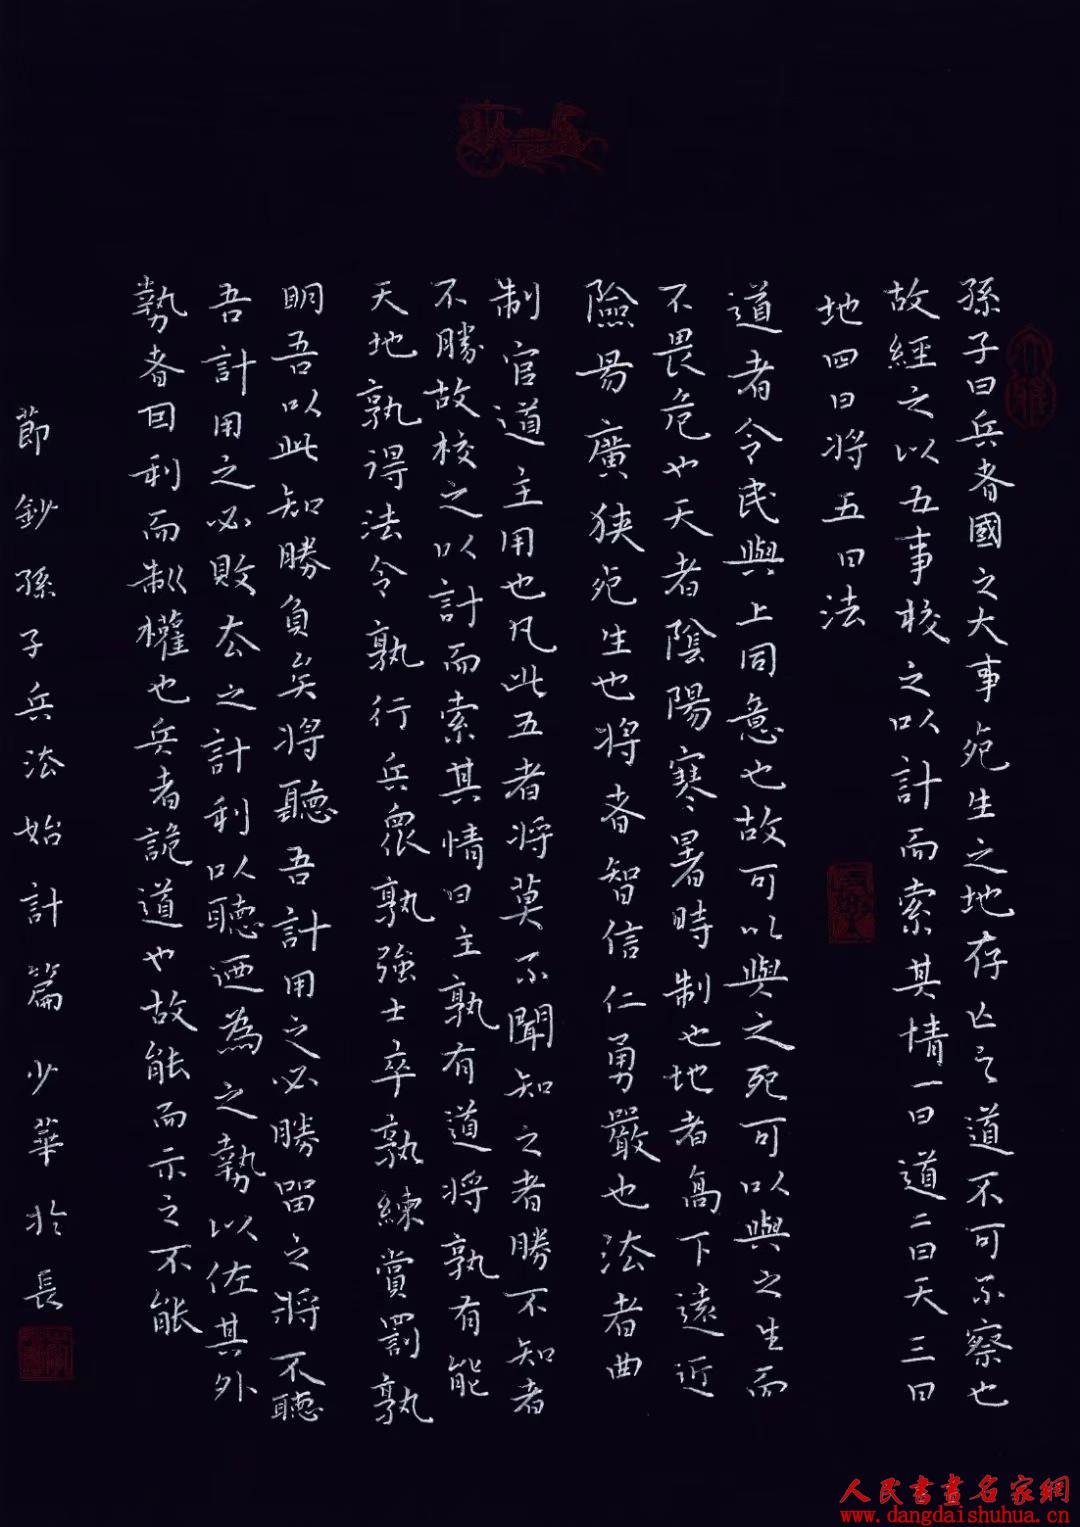 孫子曰兵者國之大事死生之地存亡之道不可不察也
故經之以五事校之以計而索其情一曰道二曰天三曰
地四曰将五曰法
道者令民與上同意也故可以與之死可以與之生而
不畏危也天者陰陽寒暑時制也地者高下遠近
險易廣狹死生也将者智信仁勇嚴也法者曲
制官道主用也凡此五者将莫不聞知之者勝不知者
不勝故校之以計而索其情曰主孰有道将孰有能
天地孰得法令孰行兵衆孰強士卒孰練賞罰孰
明吾以此知勝負矣将聽吾計用之必勝留之将不聽
吾計用之必敗去之計利以聽迺為之勢以佐其外
勢者因利而制權也兵者詭道也故能而示之不能
節鈔孫子兵法始計篇少華於長
人民書畫名家網
www.dangdaishuhua.cn